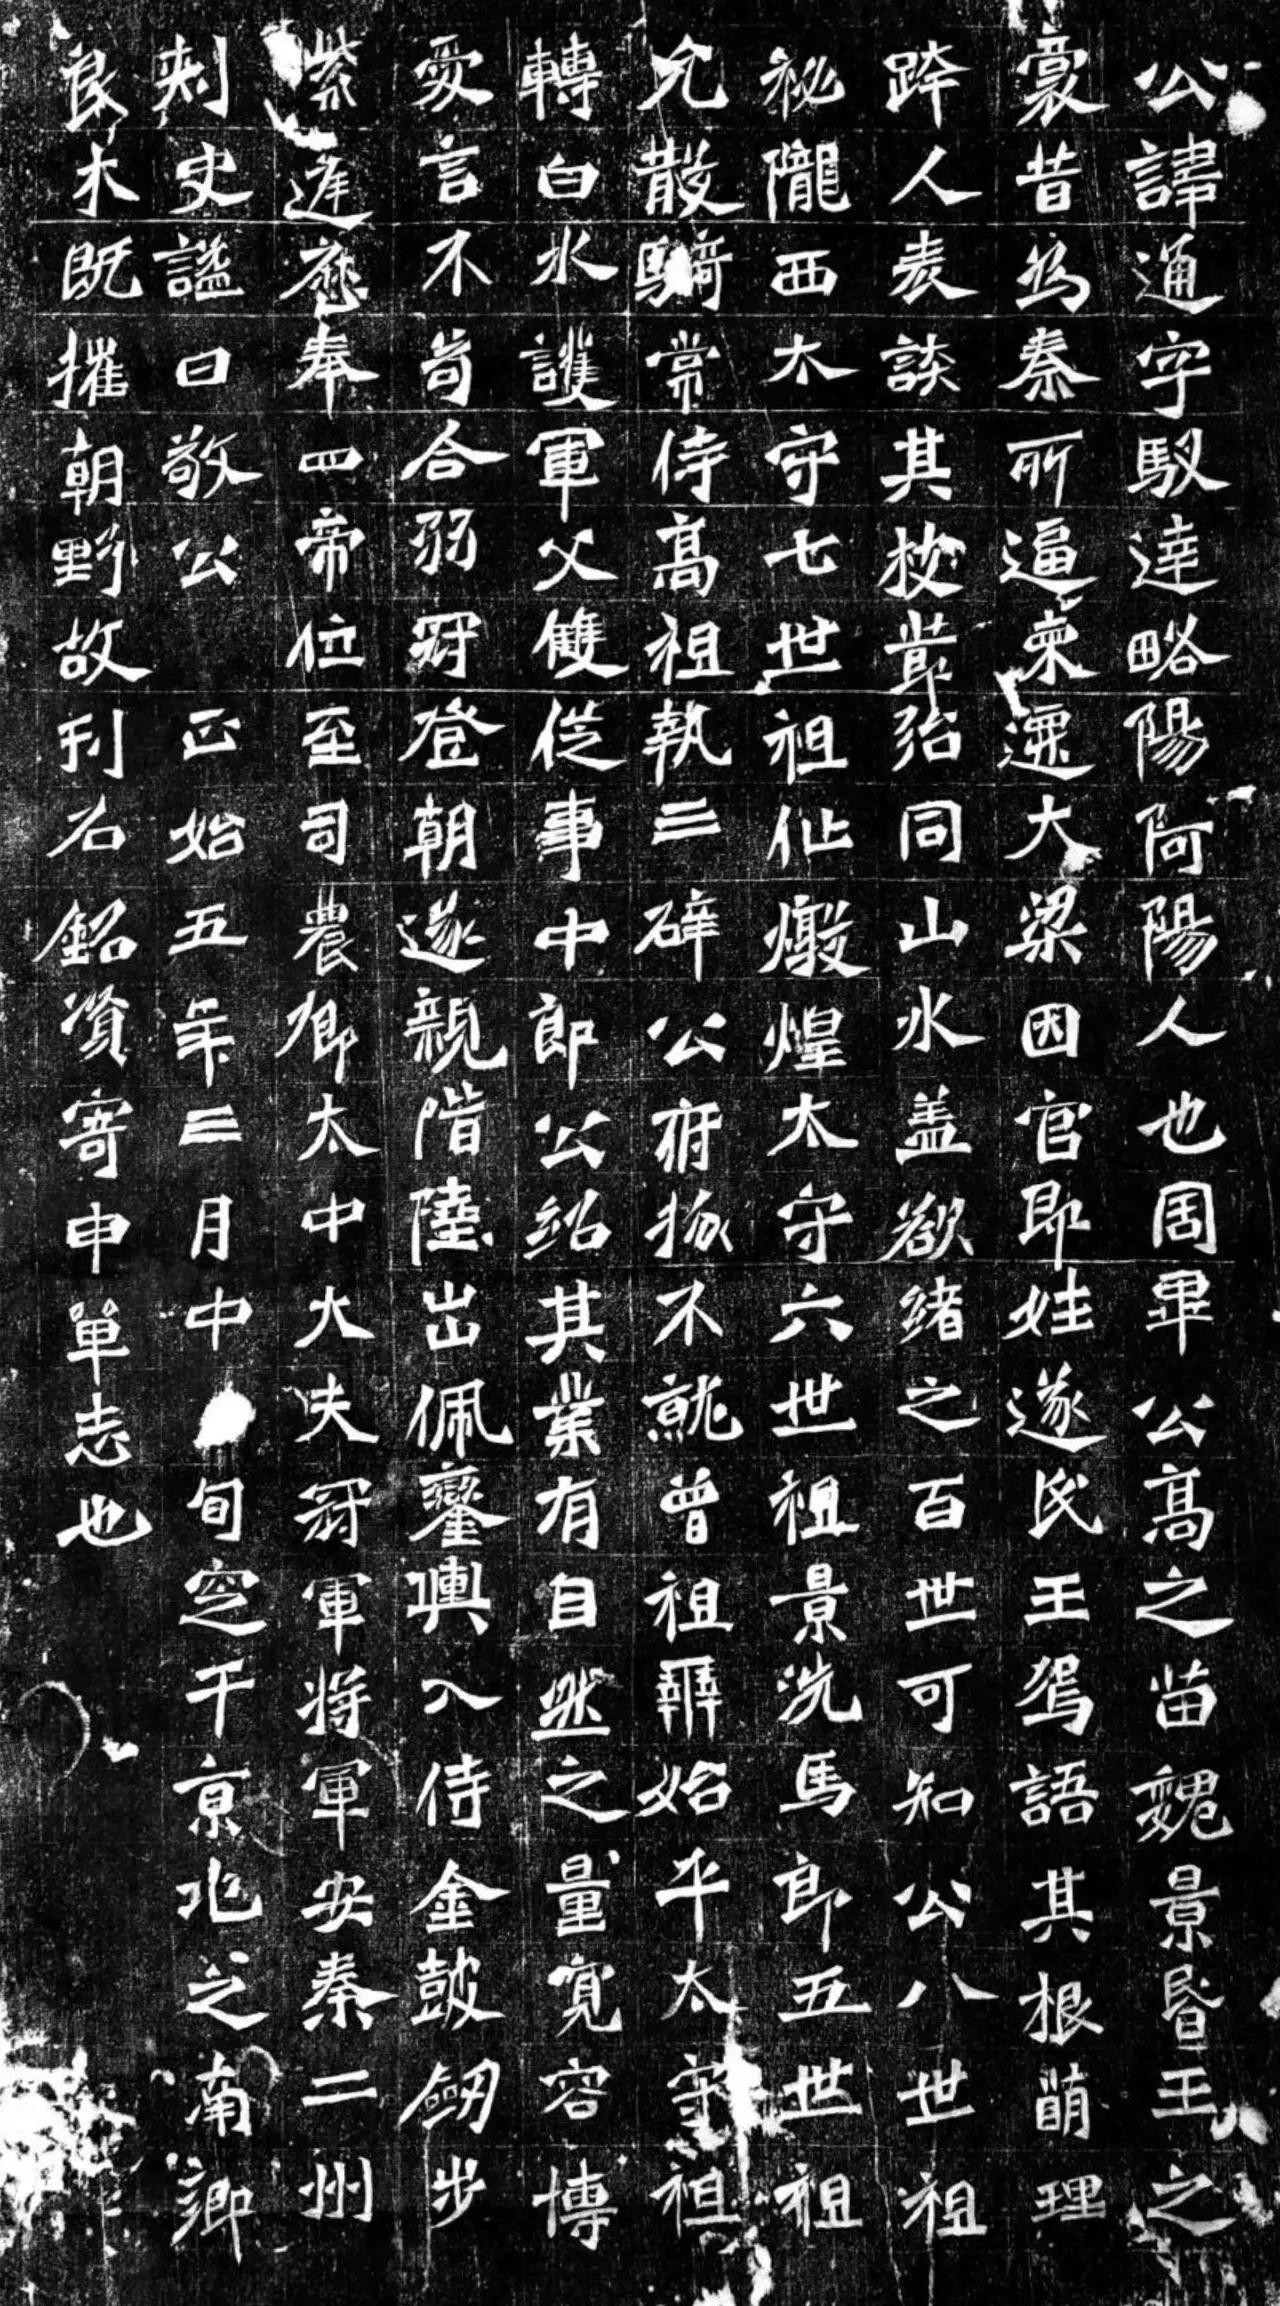 公諱通字馭達略陽阿陽人也周畢公高之苗魏景昬王之
裔昔為秦所逼東遷大梁因官即姓遂氏王焉語其根萌理
跨人表談其枝葉殆同山水盖欲緒之百世可知公八世祖
祕隴西太守七世祖仙燉煌太守六世祖景洗馬郎五世祖
允散騎常侍高祖執三辟公府掾不就曾祖羆始平太守祖
轉白水護軍父雙從事中郎公紹其業有自然之量寬容博
愛言不苟合弱冠登朝遂親階陛出佩鑾輿入侍金鼓劒步
紫遲歷奉四帝位至司農卿太中大夫冠軍將軍安秦二州
刺史謚曰敬公　正始五年三月中旬窆于京兆之南鄉
良木既摧朝野故刊石銘資寄申單志也